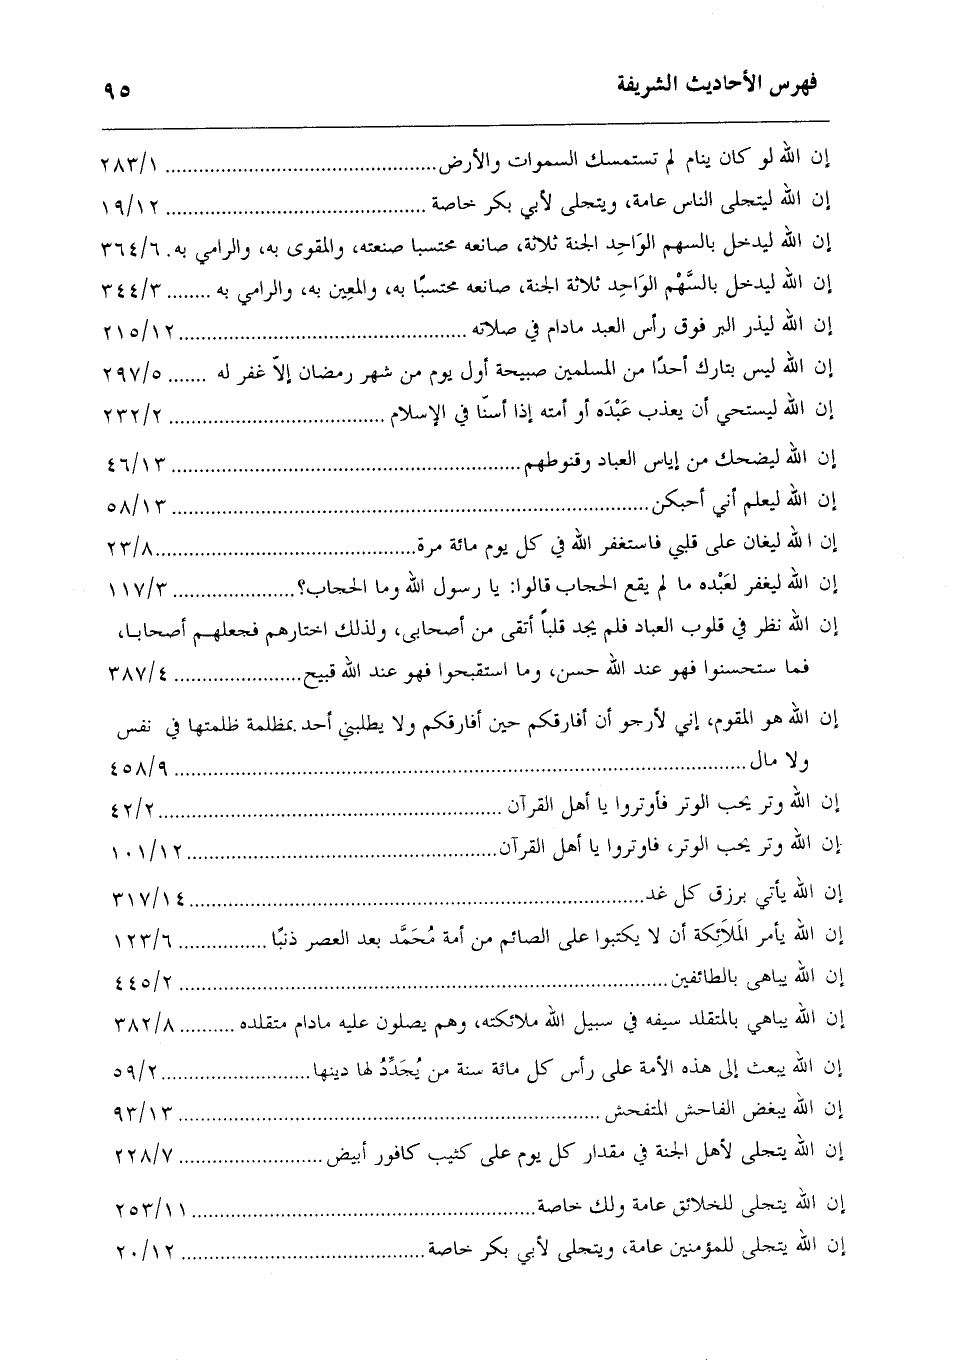 فهرس الأحاديث الشريفة ٩٥
إن الله لو كان ينام لم تستمسك السموات والأرض ٢٨٣/١
إن الله ليتجلى الناس عامة، ويتجلى لأبي بكر خاصة ١٩/١٢
إن الله ليدخل بالسهم الوَاحِد الجنة ثلاثة، صانعه محتسبا صنعته، والمقوى به، والرامي به. ٣٦٤/٦
إن الله ليدخل بالسَّهْم الوَاحِد ثلاثة الجنة، صانعه محتسبًا به، والمعِين به، والرامي به ٣٤٤/٣
إن الله ليذر البر فوق رأس العبد مادام في صلاته ٢١٥/١٢
إن الله ليس بتارك أحدًا من المسلمين صبيحة أول يوم من شهر رمضان إلاّ غفر له ٢٩٧/٥
إن الله ليستحي أن يعذب عَبْدَه أو أمته إذا أسنّا في الإسلام ٢٣٢/٢
إن الله ليضحك من إياس العباد وقنوطهم ٤٦/١٣
إن الله ليعلم أني أحبكن ٥٨/١٣
إن ا لله ليغان على قلبي فاستغفر الله في كل يوم مائة مرة ٢٣/٨
إن الله ليغفر لعَبْده ما لم يقع الحجاب قالوا: يا رسول الله وما الحجاب؟ ١١٧/٣
إن الله نظر في قلوب العباد فلم يجد قلباً أتقى من أصحابى، ولذلك اختارهم فجعلهم أصحابا،
فما ستحسنوا فهو عند الله حسن، وما استقبحوا فهو عند الله قبيح ٣٨٧/٤
إن الله هو المقوم، إني لأرجو أن أفارقكم حين أفارقكم ولا يطلبني أحد بمظلمة ظلمتها في نفس
ولا مال ٤٥٨/٩
إن الله وتر يحب الوتر فأوتروا يا أهل القرآن ٤٢/٢
إن الله وتر يحب الوتر، فاوتروا يا أهل القرآن ١٠١/١٢
إن الله يأتي برزق كل غد ٣١٧/١٤
إن الله يأمر المَلاَئِكة أن لا يكتبوا على الصائم من أمة مُحَمَّد بعد العصر ذنبًا ١٢٣/٦
إن الله يباهى بالطائفين ٤٤٥/٢
إن الله يباهي بالمتقلد سيفه في سبيل الله ملائكته، وهم يصلون عليه مادام متقلده ٣٨٢/٨
إن الله يبعث إلى هذه الأمة على رأس كل مائة سنة من يُجَدِّدُ لها دينها ٥٩/٢
إن الله يبغض الفاحش المتفحش ٩٣/١٣
إن الله يتجلى لأهل الجنة في مقدار كل يوم على كثيب كافور أبيض ٢٢٨/٧
إن الله يتجلى للخلائق عامة ولك خاصة ٢٥٣/١١
إن الله يتجلى للمؤمنين عامة، ويتجلى لأبي بكر خاصة ٢٠/١٢